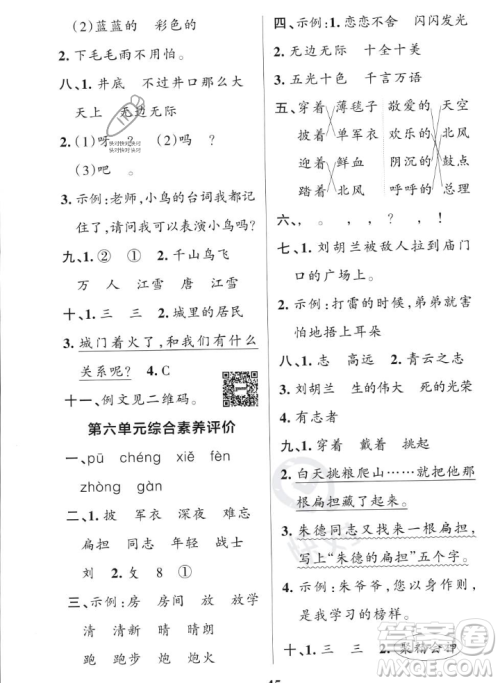 (2)蓝蓝的 彩色的
2. 下毛毛雨不可怕。
八、1. 井底 不过井口那么大
天上 无边无际
2. (1)呀? (2)吗 ?
(3)吧 。
3. 示例:老师,小鸟的台词我都记
住了,请问我可以表演小鸟吗?
九、1. ② ① 2. 千山鸟飞
万 人 江雪 唐 江雪
十、1. 三 三 2. 城里的居民
3. 城门着火了,和我们有什么
关系呢? 4. C
十一、例文见二维码。
第六单元综合素养评价
一、pū chéng xiě fèn
zhòng gàn
二、1. 披 军衣 深夜 难忘
扁担 同志 年轻 战士
刘 2. 攵 8 ①
三、示例:房 房间 放 开放
清 清凉 晴 晴朗
跑 跑步 炮 炮弹
四、示例:1. 恋恋不舍 闪闪发光
2. 无边无际 十全十美
3. 五光十色 千言万语
五、穿着 薄毯子 敬爱的 天空
披着 单军衣 欢乐的 北风
迎着 鲜血 阴沉的 鼓点
踏着 北风 呼呼的 总理
六、。 , 。 , ! 。
七、1. 刘胡兰被敌人拉到庙门
口的广场上。
2. 示例:打雷的时候,弟弟害
怕地捂上耳朵。
八、1. 志 高远 2. 青云之志
3. 刘胡兰 生的伟大 死的光荣
4. 有志者
九、1. 穿着 戴着 挑起
2. 白天挑粮爬山……就把他那
根扁担藏了起来。
3. 朱德同志又找来一根扁担,
写上“朱德的扁担”五个字。
4. 示例:朱爷爷,您真伟大,您
是我学习的榜样。
十、1. 三 三 2.
15